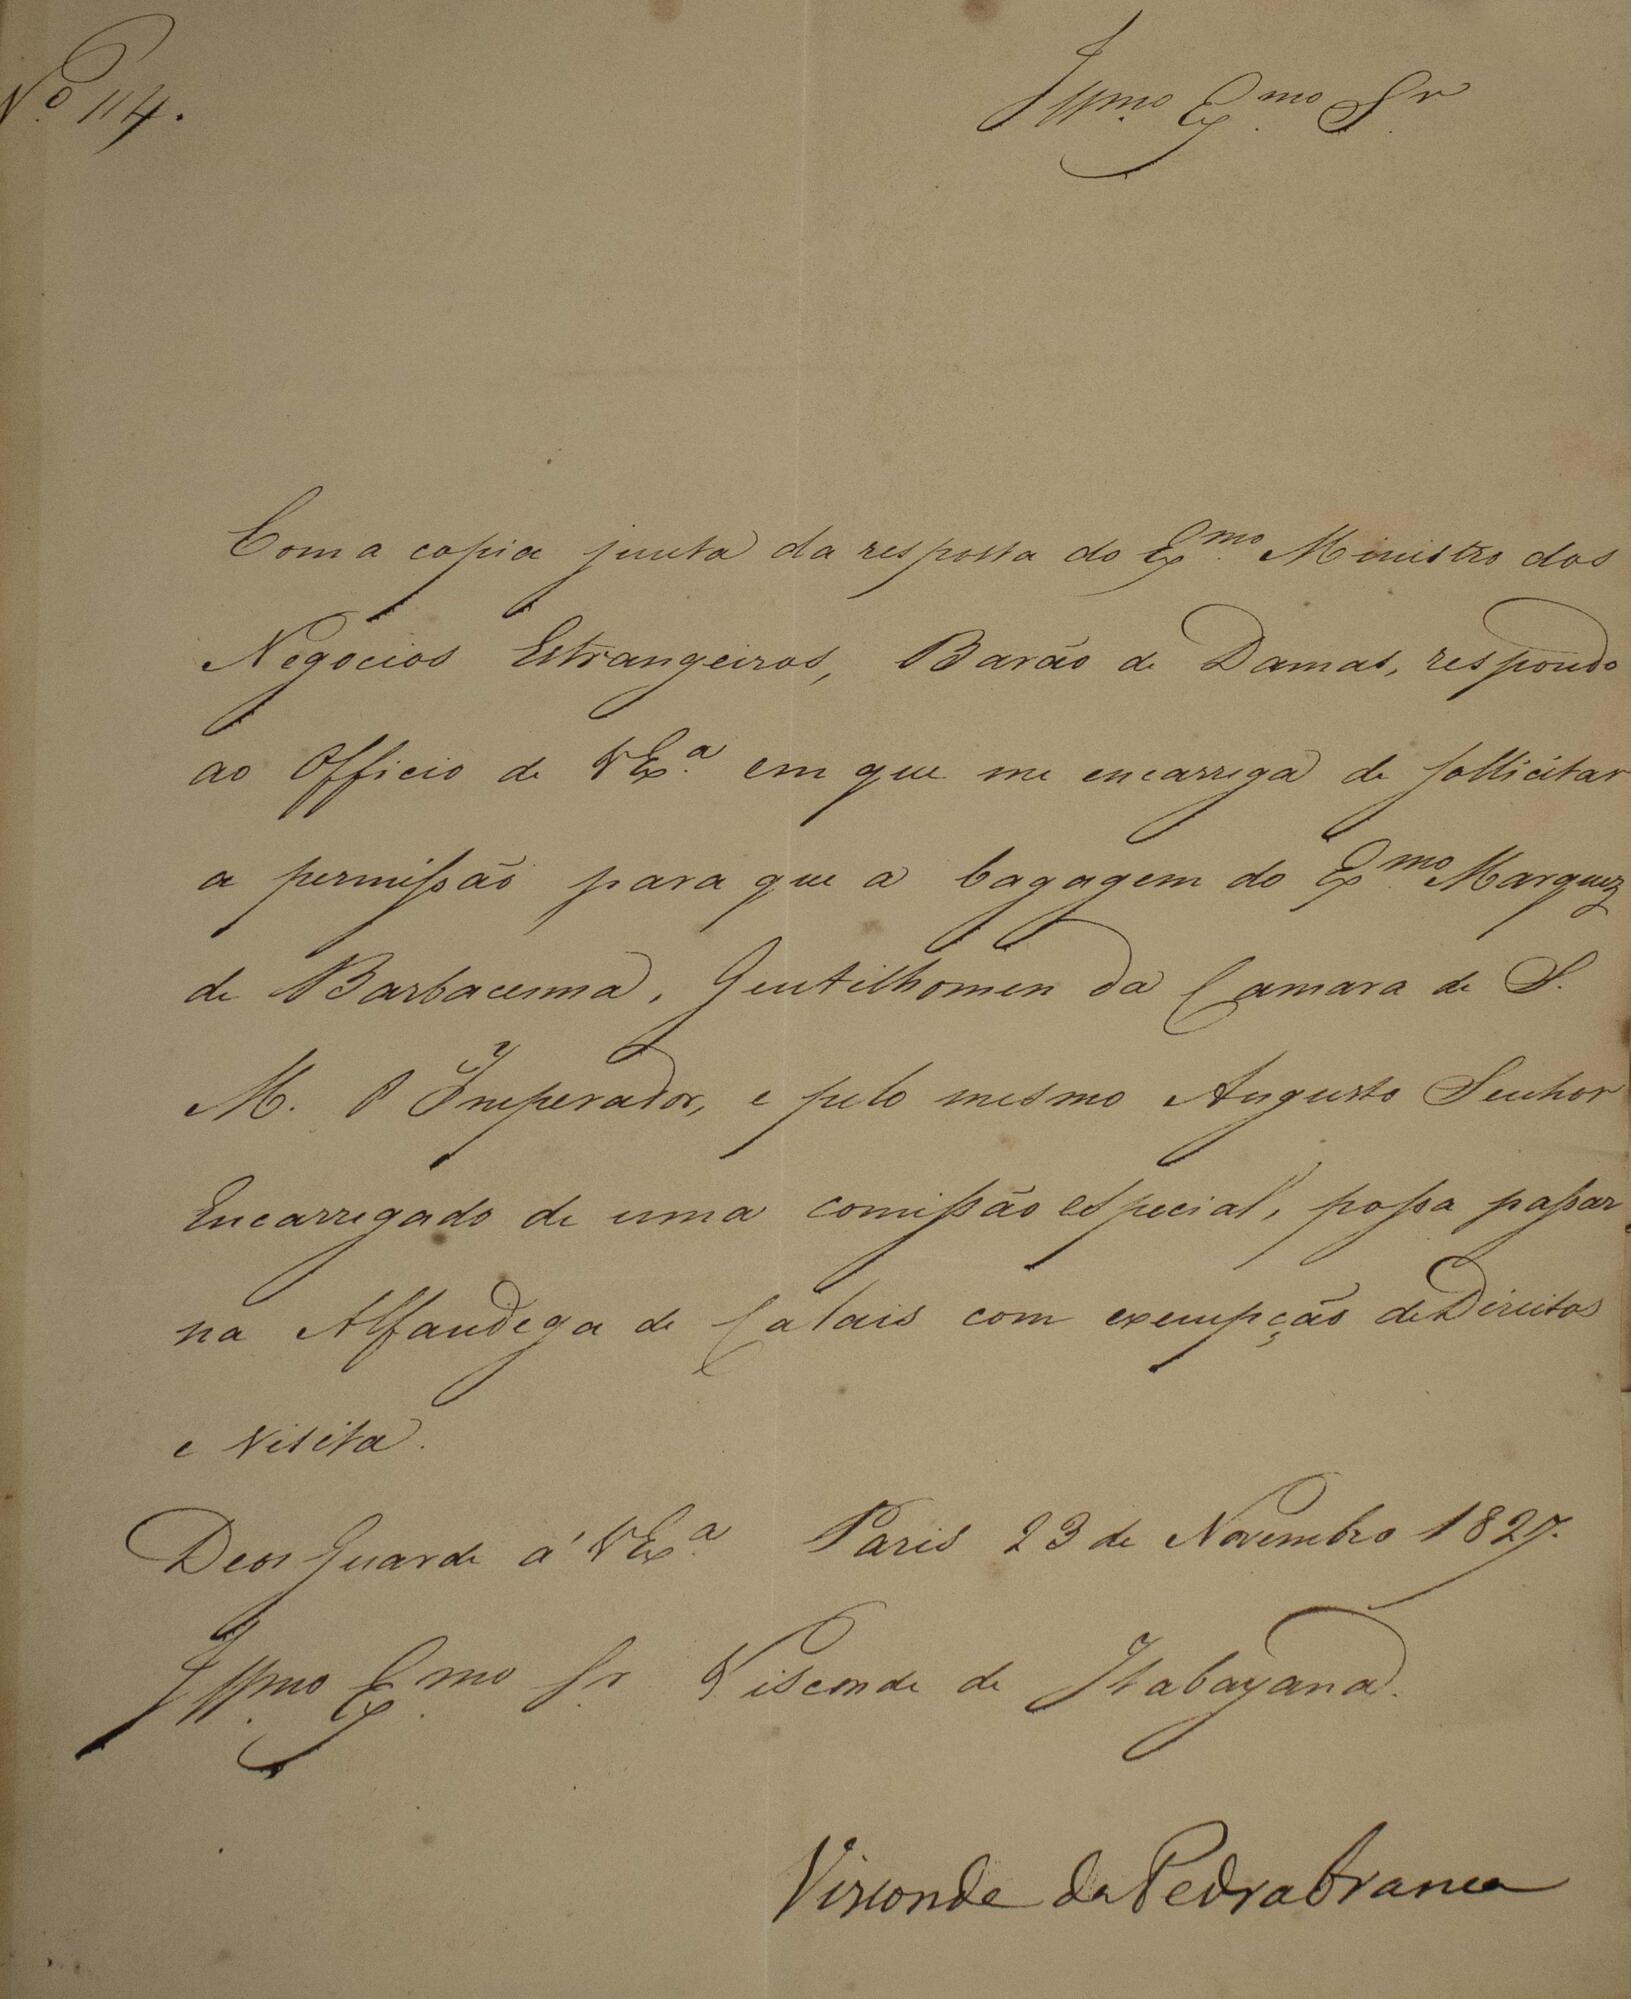 Nº 114.
Illmo. Exmo. Sr.
Com a copia junta da resposta do Exmo. Ministro dos
Negocios Estrangeiros, Barão de Damas, respondo
ao Officio de VExa. em que me encarrega de sollicitar
a permissão para que a bagagem do Exmo. Marquez
de Barbacenna, Gentilhomen da Camara de S.
M. O Imperador, e pelo mesmo Augusto Senhor
Encarregado de uma comissão especial, possa passar
na Alfandega de Calais com exempção de Direitos
e Visita.
Deos Guarde á VExa. Paris 23 de Novembro 1827.
Illmo. Exmo. Sr. Visconde de Itabayana.
Visconde da Pedra branca